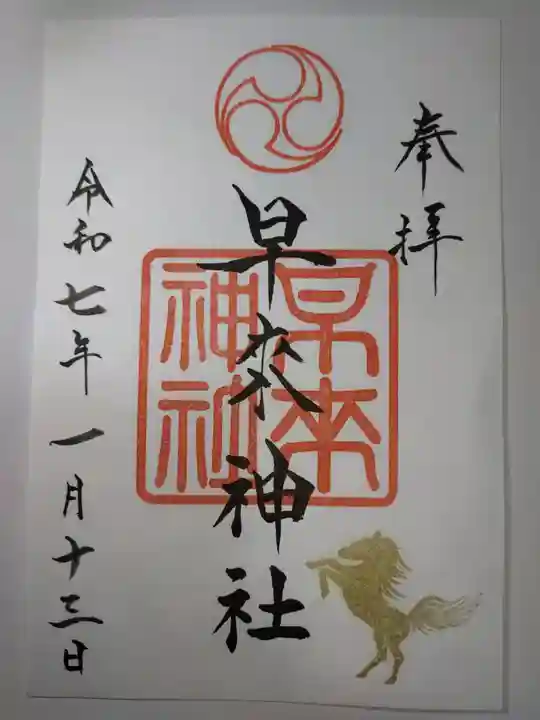 奉拝
早来神社
早来
神社
令和七年一月十三日